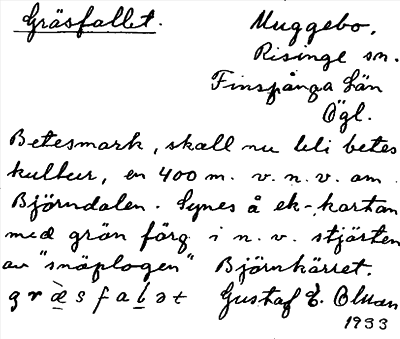 Gräsfallet.
Muggebo.
Risinge sn.
Finspånga län
Ögl.
Betesmark, skall nu bli betes
kultur, en 400 m. v. n. v. om
Björndalen. Synes å ek-kartan
med grön färg i n. v. stjärten
av "snöplogen" Björnkärret.
græ̀sfalət Gustaf E. Olman
1933